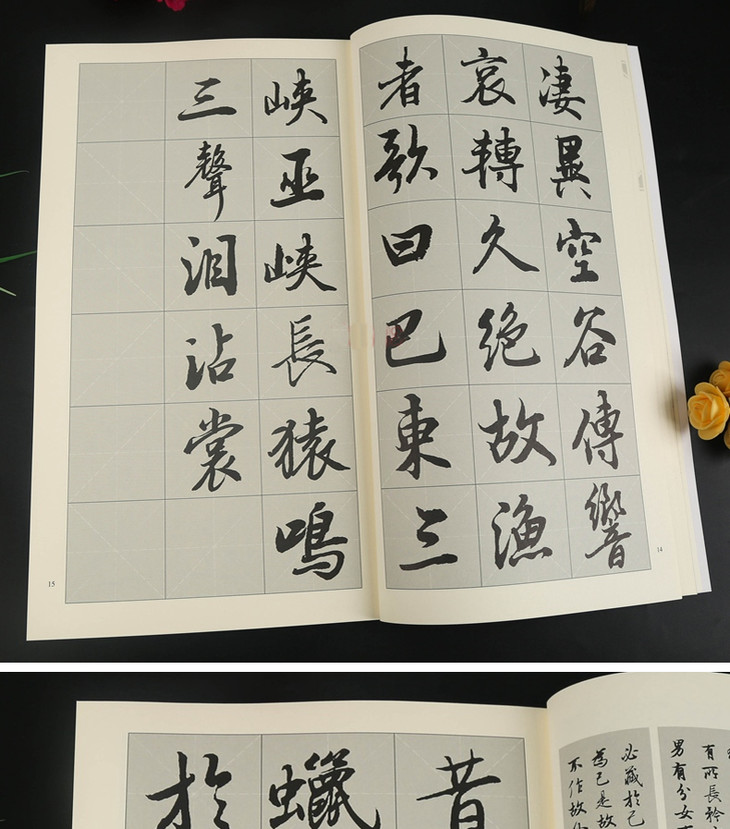 淒異空谷傳響
哀轉久絕故漁
者歌曰巴東三
峽巫峽長猿鳴
三聲淚沾裳
14
15
昔
蠟
於
有所長矜
男有分女
必藏於己
為己是故
不作故